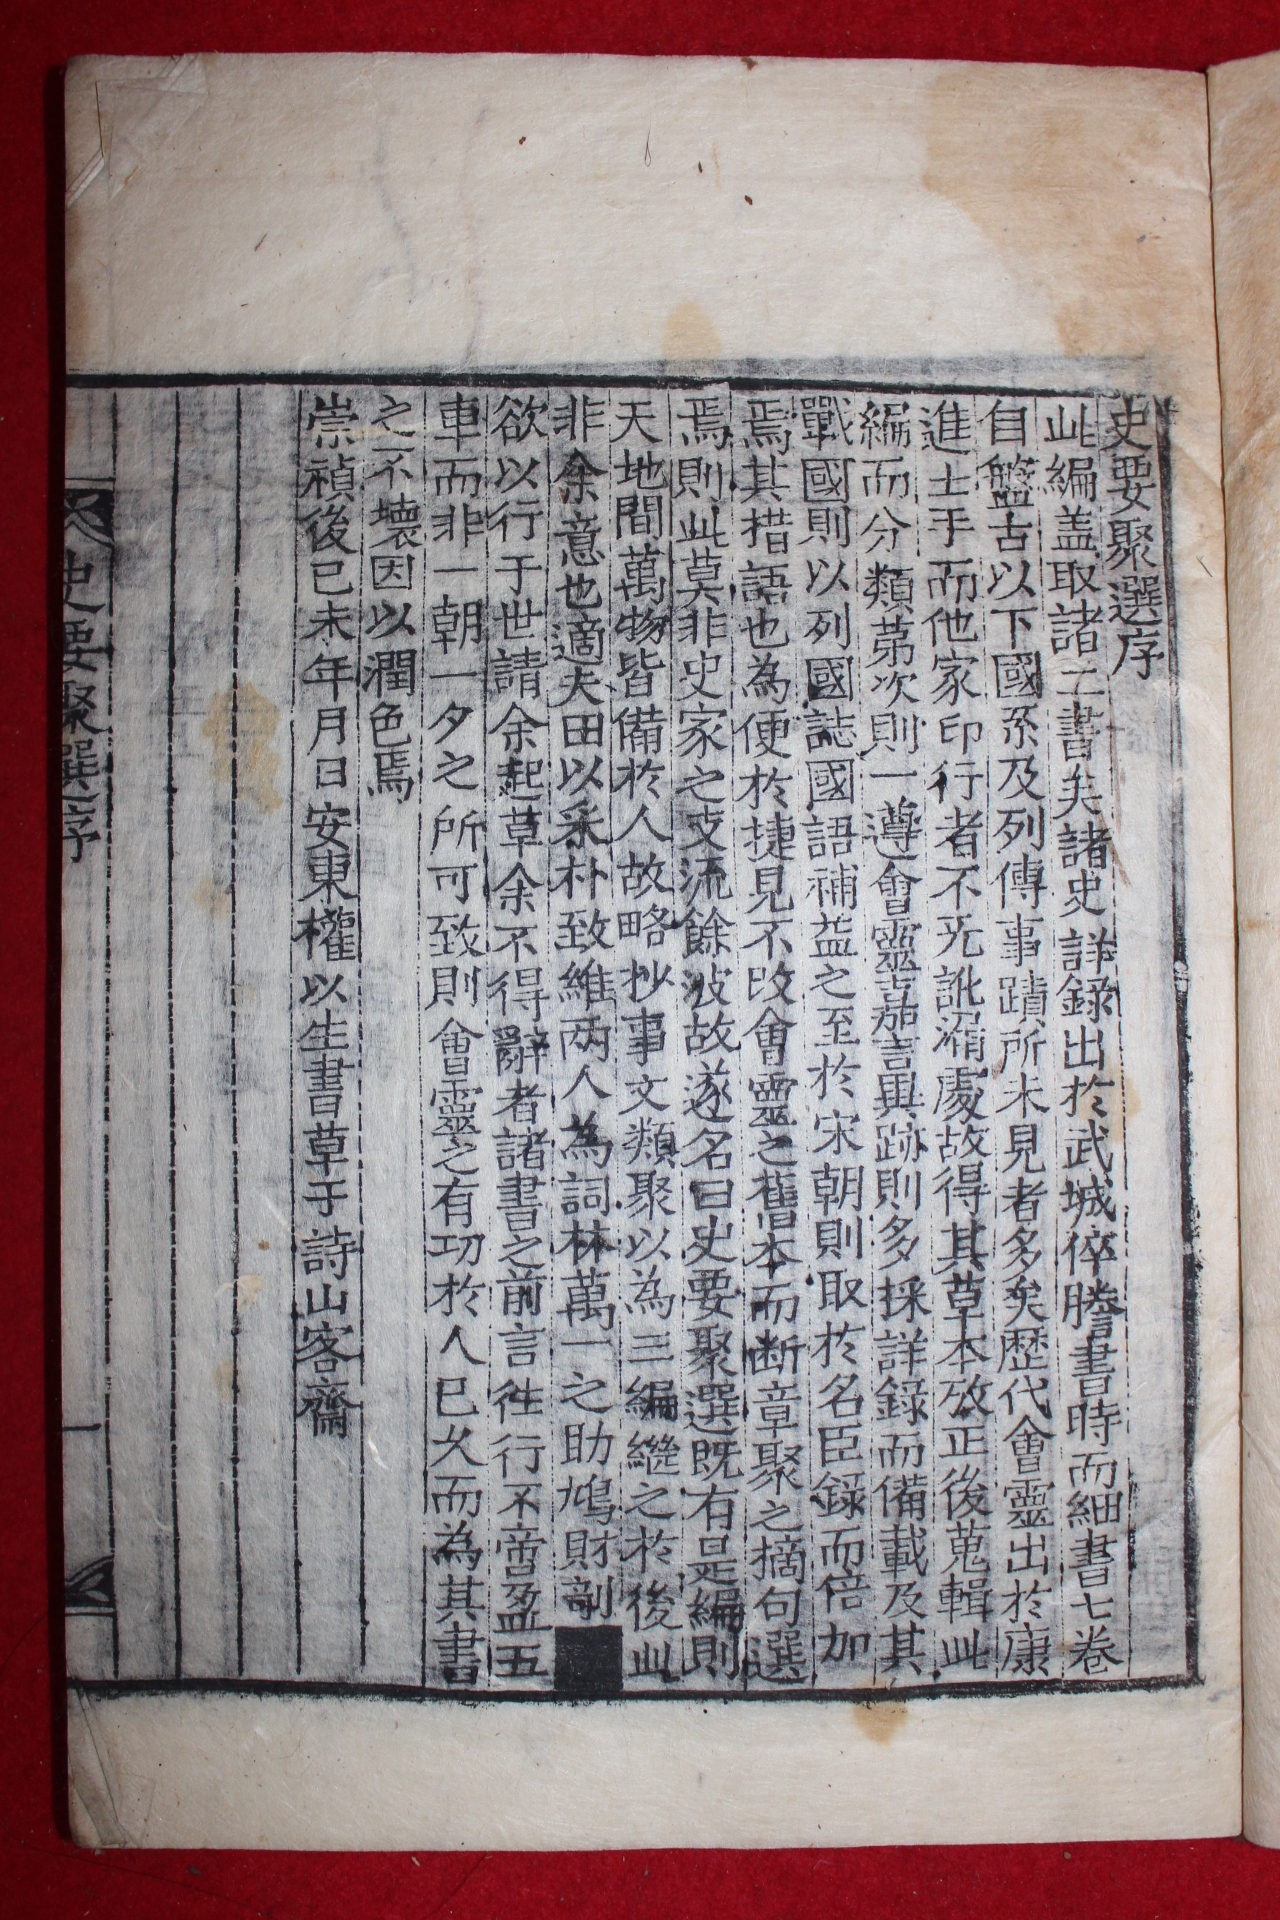 史要聚選序
此編盖取諸二書矣諸史詳録出於武城倅謄書時而細書七卷
自盤古以下國系及列傳事蹟所未見者多矣歷代會靈出於康
進士手而他家印行者不旡訛漏處故得其草本攷正後蒐輯此
編而分類苐次則一遵會靈嘉言與跡則多採詳録而備載及其
戰國則以列國誌國語補益之至於宋朝則取於名臣録而倍加
焉其措語也為便於捷見不改會靈之舊本而断章聚之摘句選
焉則此莫非史家之支流餘波故遂名曰史要聚選既有是編則
天地間萬物皆備於人故略抄事文類聚以為三編継之於後此
非余意也適夫田以采朴致維两人為詞林萬一之助鳩財剞■
欲以行于世請余起草余不得辭者諸書之前言徃行不啻盈五
車而非一朝一夕之所可致則會靈之有功於人已久而為其書
之不壊因以潤色焉
崇禎後己未年月日安東權以生書草于詩山客齋
史要聚選序
一